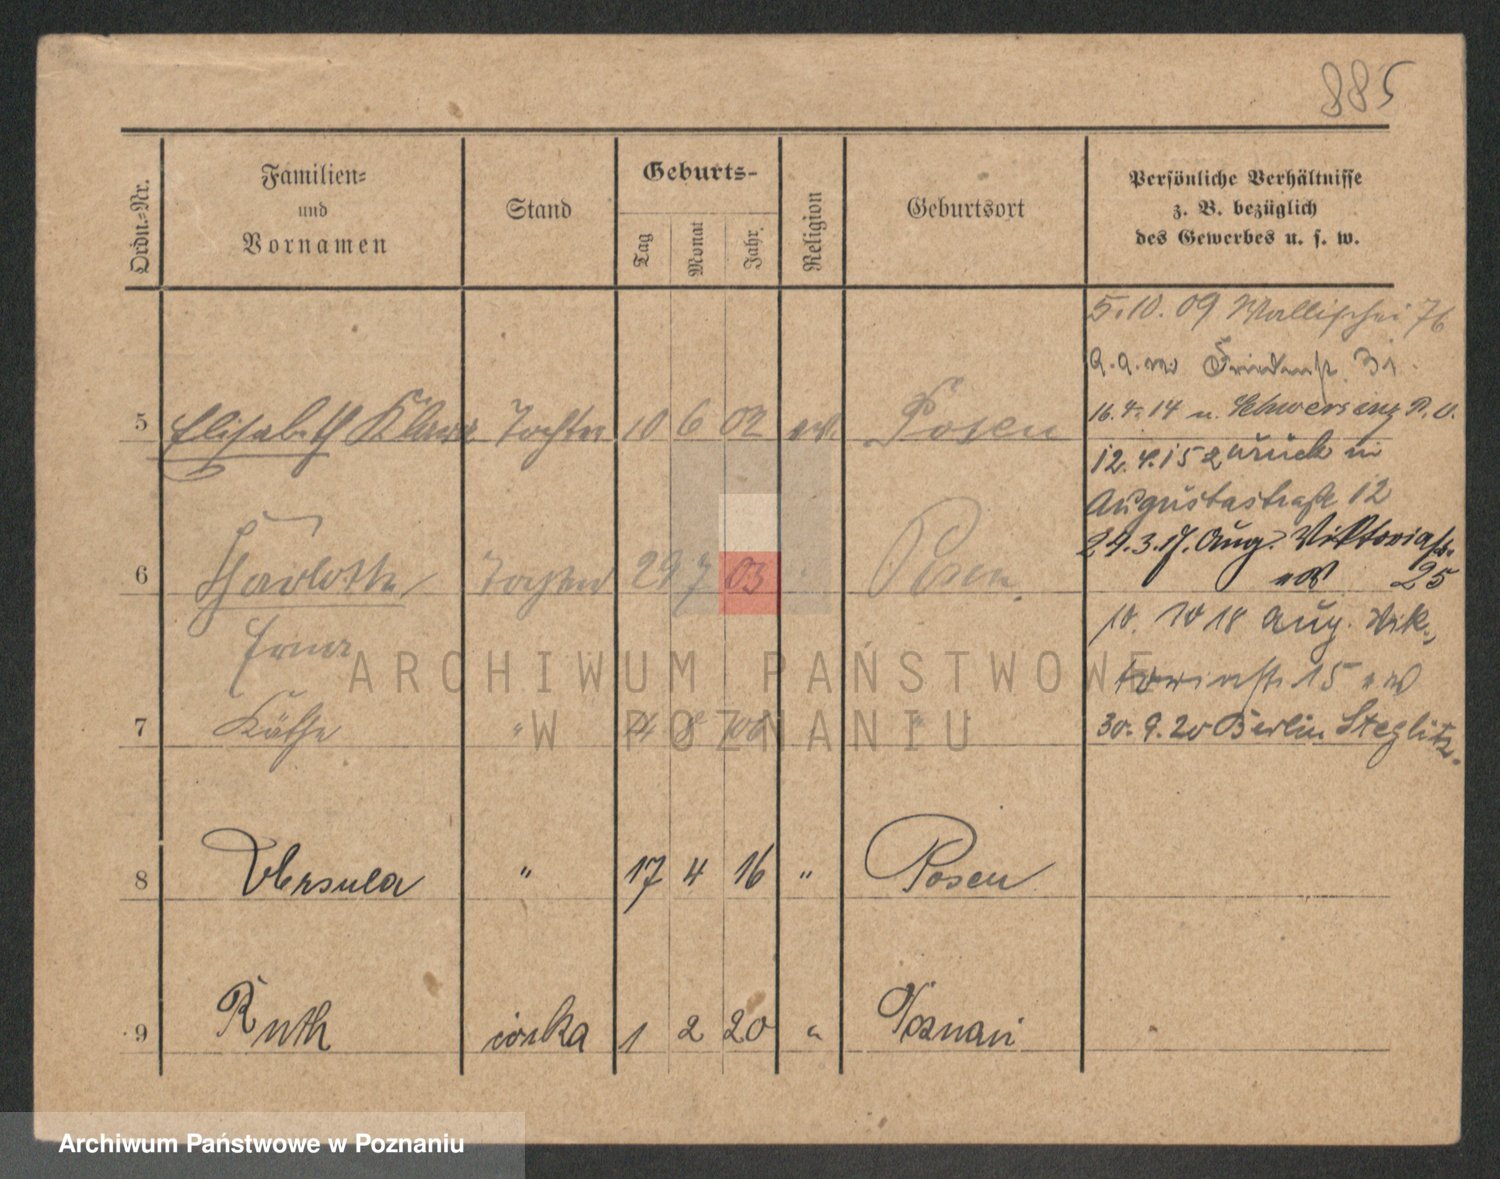 885
Ordn.-Nr.
Familien-
und
Vornamen
Stand
Geburts-
Tag
Monat
Jahr
Religion
Geburtsort
Persönliche Verhältnisse
z. B. bezüglich
des Gewerbes u. s. w.
5.10.09 Wallischei 76
Friedenst. 31
16.4.14 n. Schwersenz P. O.
5 Elisabeth Klara Tochter 10 6 02 ev. Posen
12.4.15 zurück in
Augustastraße 12
24.3.17. Aug. Viktoriastr.
25
6 Charlotte Tochter 29 7 03 Posen
10. 10 18 Aug. Vik-
Erna
toriastr. 15
7 Käthe " 8 "
30.9.20 Berlin Steglitz.
8 Ursula " 17 4 16 " Posen
9 Ruth córka 1 2 20 " Poznań
ARCHIWUM PAŃSTWOWE
W POZNANIU
Archiwum Państwowe w Poznaniu